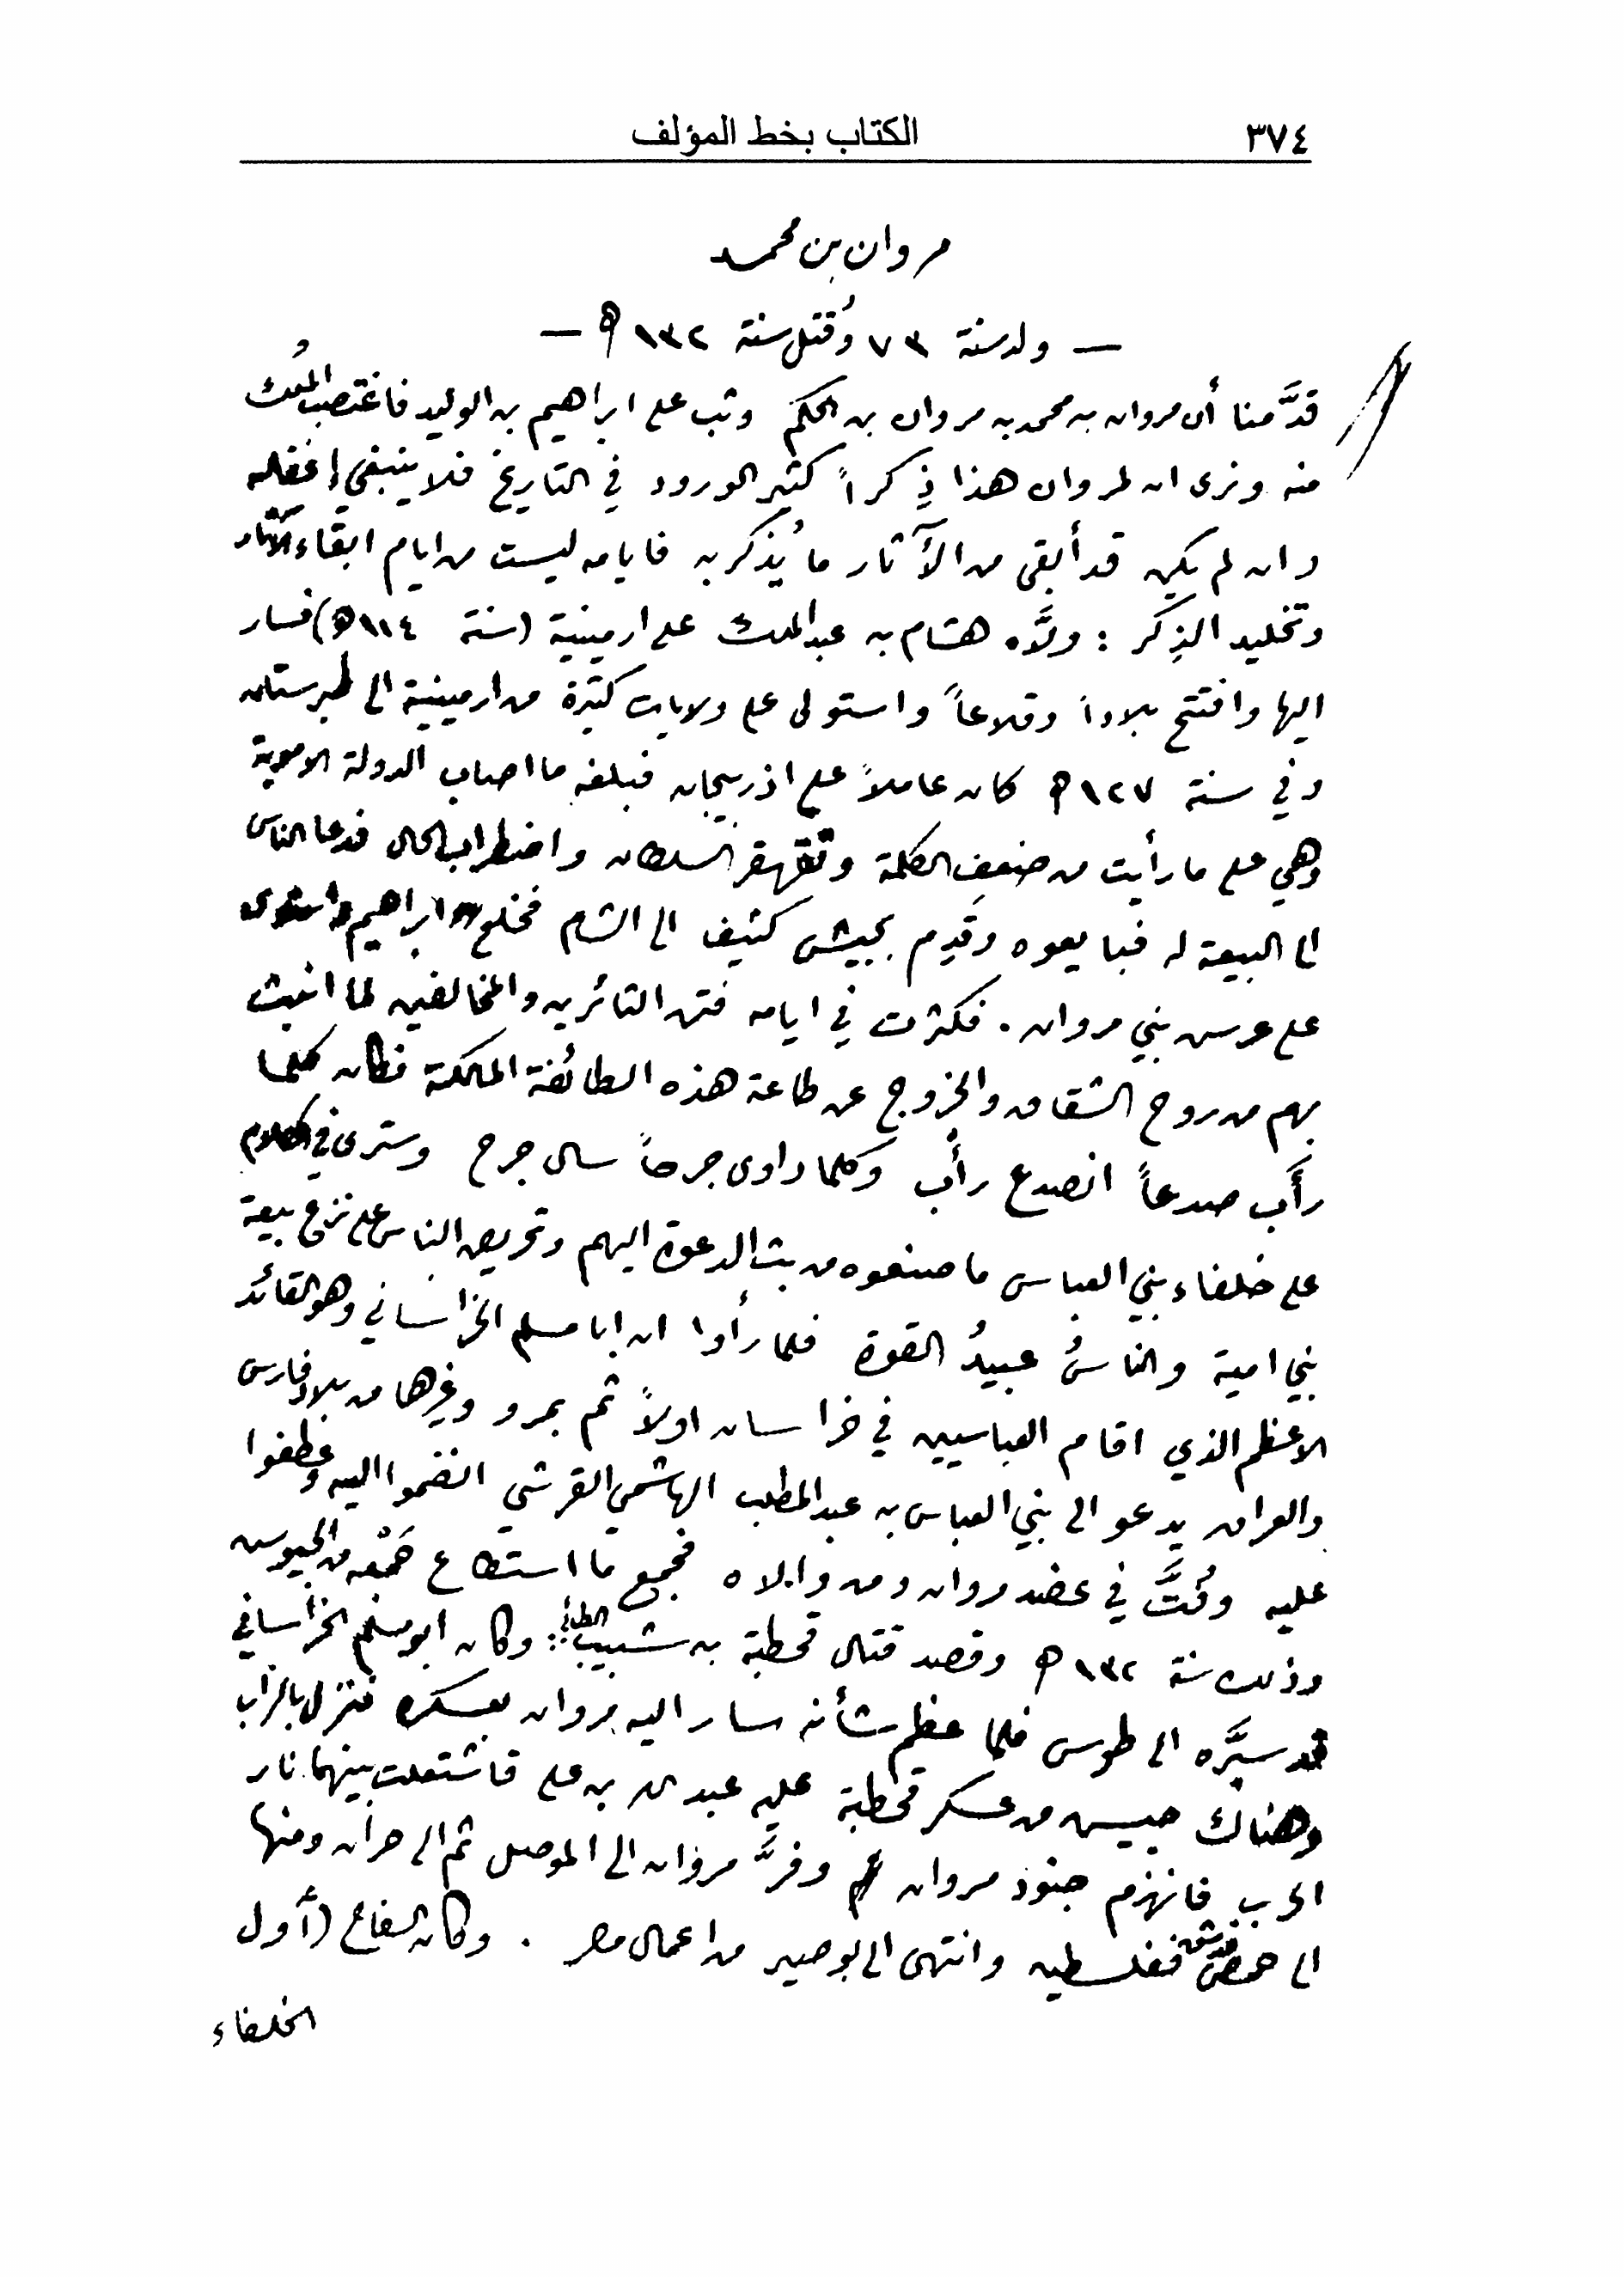 ٣٧٤ الكتاب بخط المؤلف
مروان بن محمد
— ولد سنة ٧٣ وقُتل سنة ١٣٢ ھ —
قدَّمنا أن مروان بن محمد بن مروان بن الحكم وثب على ابراهيم بن الوليد فاغتصب المُلك
منه ونرى ان لمروان هذا ذِكراً كثير الورود في التاريخ فلا ينبغي إغفاله
وان لم يكن قد أبقى من الآثار ما يُذكر به فايامه ليست من ايام ابقاء الآثار
وتخليد الذِكر : ولَّاه هشام بن عبد الملك على ارمينية (سنة ١١٤ ھ) فسار
اليها وافتتح بلاداً وقلاعاً واستولى على ولايات كثيرة من ارمينية الى طبرستان
وفي سنة ١٢٧ ھ كان عاملاً على اذربيجان فبلغه ما اصاب الدولة الاموية
وهي على ما رأيت من ضعف الكلمة وتقهقر السلطان واضطراب الحال فدعا الناس
الى البيعة له فبايعوه وقَدِم بجيش كثيف الى الشام فخلع ابراهيم واستوى
على عرش بني مروان . فكثرت في ايامه فتن الثائرين والمخالفين لما انبث
بهم من روح الشقاق والخروج عن طاعة هذه الطائفة المالكة فكان كلما
رأَب صدعاً انصدع رأْب وكلما داوى جرحاً سال جرح وسترى في الكلام
على خلفاء بني العباس ما صنعوه من بث الدعوة اليهم وتحريض الناس على نزع بيعة
بني امية والناسُ عبيدُ القوة فلما رأوا ان ابا مسلم الخراساني وهو القائد
الاعظم الذي اقام العباسيين في خراسان اولاً ثم بمرو وغيرها من بلاد فارس
والعراق يدعو الى بني العباس بن عبد المطلب الهاشمي القرشي انضموا اليه وعطفوا
عليه وفُتَّ في عضد مروان ومن والاه فجمع ما استطاع جَمْعه من الجيوش
وذلك سنة ١٣٢ ھ وقصد قتال قحطبة بن شبيب الطائي: وكان ابو مسلم الخراساني
قد سيَّره الى طوس فلما عظم شأنه سار اليه مروان بعسكره فنزل بالزاب
وهناك جيش من عسكر قحطبة عليه عبد الله بن علي فاشتعلت بينهما نار
الحرب فانهزم جنود مروان وفرَّ مروان الى الموصل ثم الى حران ومنها
الى حمص فدمشق ففلسطين وانتهى الى بوصير من اعمال مصر . وكان السفاح (أول
الخلفاء